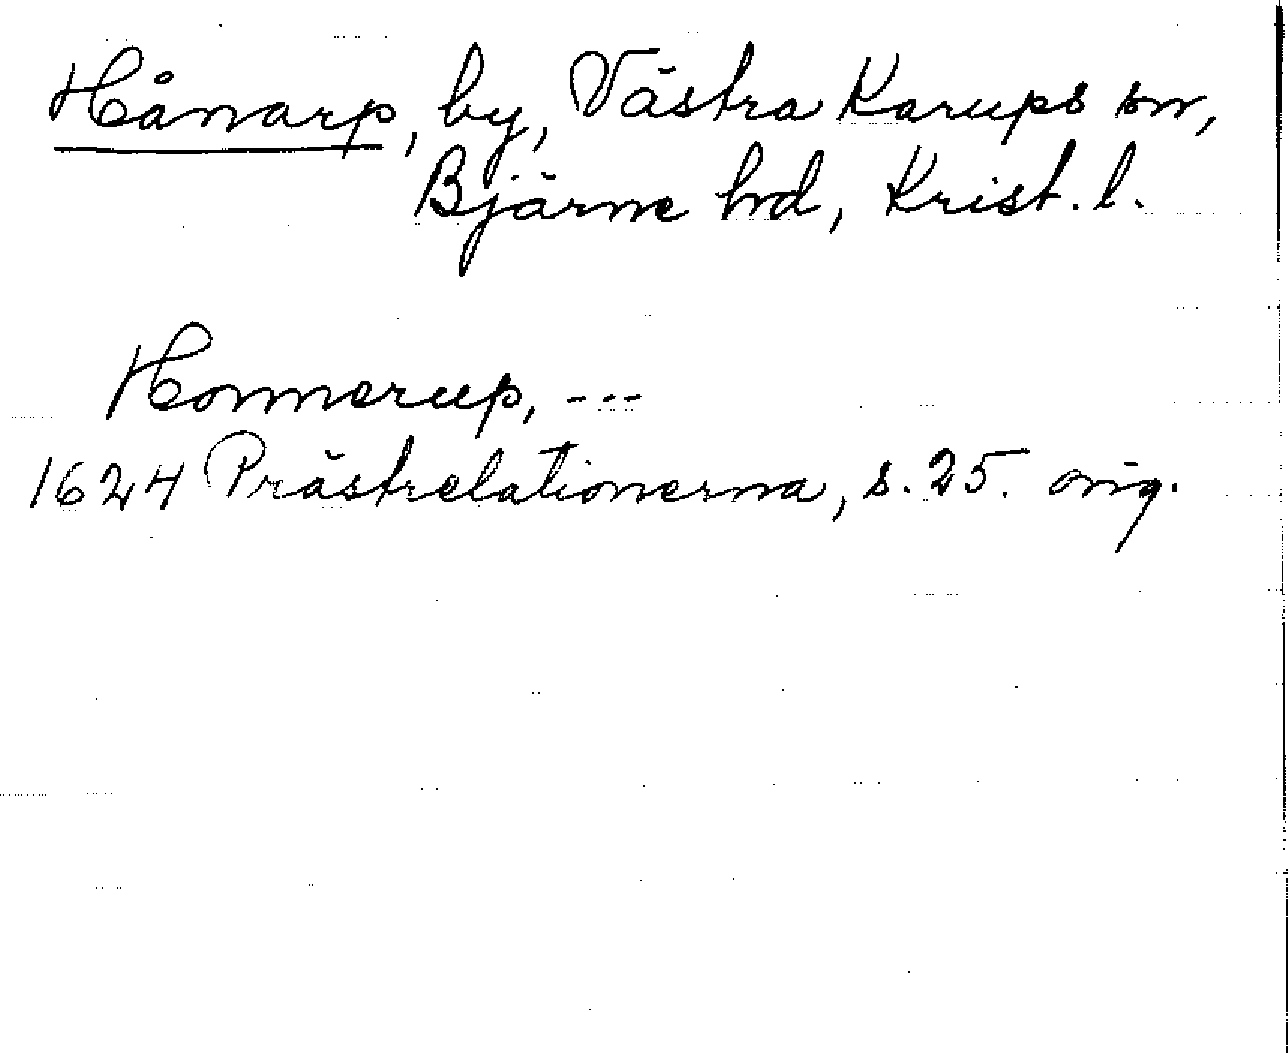 Hånarp, by, Västra Karups sn,
Bjärne hd, Krist. l.
Honnerup, ---
1624 Prästrelationerna, s. 25. orig.